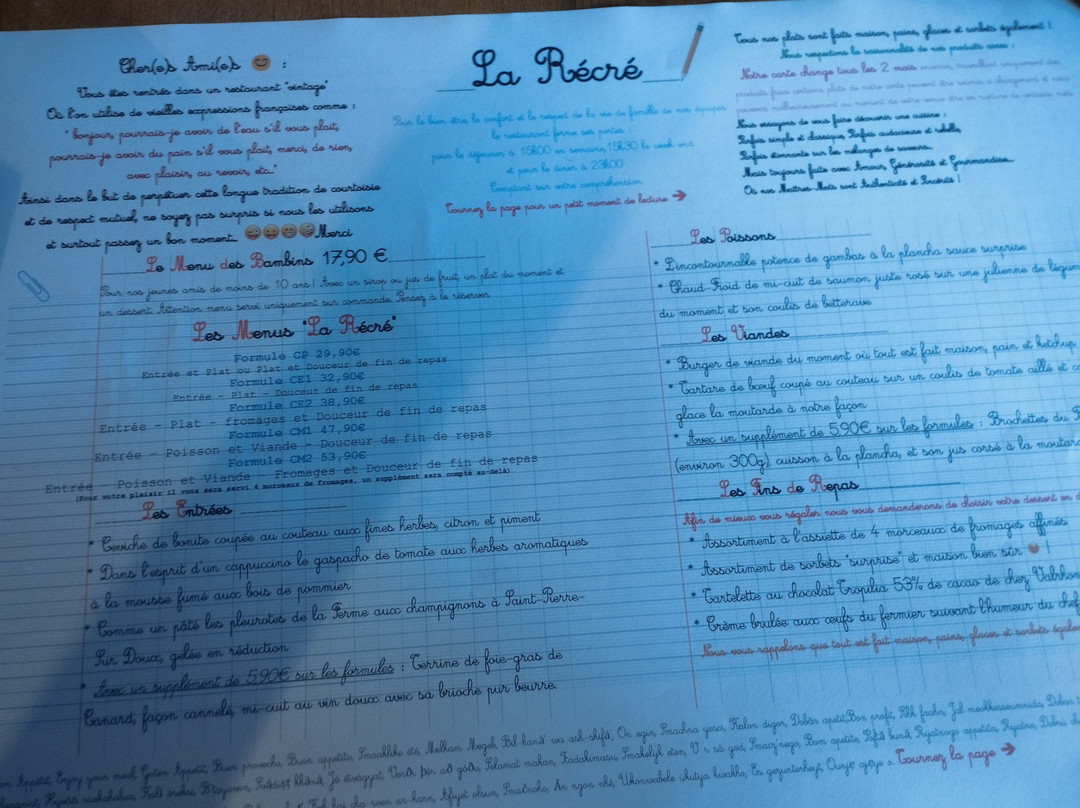 Cher(e)s Ami(e)s 😊 :
Vous êtes rentrés dans un restaurant "vintage"
Où l'on utilise de vieilles expressions françaises comme :
"bonjour, pourrais-je avoir de l'eau s'il vous plait,
pourrais-je avoir du pain s'il vous plait, merci, de rien,
avec plaisir, au revoir, etc."
Ainsi dans le but de perpétuer cette longue tradition de courtoisie
et de respect mutuel, ne soyez pas surpris si nous les utilisons
et surtout passez un bon moment... Merci
La Récré
Pour le bien être, le confort et le respect de la vie de famille de nos équipes
le restaurant ferme ses portes :
pour le déjeuner à 15h00 en semaine, 15h30 le week end
et pour le diner à 23h00
Comptant sur votre compréhension
Tournez la page pour un petit moment de lecture →
Tous nos plats sont faits maison, pains, glaces et sorbets également !
Nous respectons la saisonnalité de nos produits ainsi :
Notre carte change tous les 2 mois
Nous essayons de vous faire découvrir une cuisine :
Parfois simple et classique, Parfois audacieuse et rebelle,
Parfois étonnante sur les mélanges de saveurs...
Mais toujours faite avec Amour, Générosité et Gourmandise...
Où nos Maîtres-Mots sont Authenticité et Sincérité !
Le Menu des Bambins 17,90 €
Pour nos jeunes amis de moins de 10 ans ! Avec un sirop ou jus de fruit, un plat du moment et
un dessert. Attention menu servi uniquement sur commande. Pensez à le réserver.
Les Menus "La Récré"
Formule CP 29,90€
Entrée et Plat ou Plat et Douceur de fin de repas
Formule CE1 32,90€
Entrée - Plat - Douceur de fin de repas
Formule CE2 38,90€
Entrée - Plat - fromages et Douceur de fin de repas
Formule CM1 47,90€
Entrée - Poisson et Viande - Douceur de fin de repas
Formule CM2 53,90€
Entrée - Poisson et Viande - Fromages et Douceur de fin de repas
(Pour votre plaisir il vous sera servi 4 morceaux de fromages, un supplément sera compté au-delà)
Les Entrées
* Ceviche de bonite coupée au couteau aux fines herbes, citron et piment
* Dans l'esprit d'un cappuccino le gaspacho de tomate aux herbes aromatiques
à la mousse fumé aux bois de pommier
* Comme un pâté les pleurotes de la Ferme aux champignons à Saint-Pierre-
Sur Doux, gelée en réduction
* Avec un supplément de 5,90€ sur les formules : Terrine de foie-gras de
Canard, façon cannelé, mi-cuit au vin doux avec sa brioche pur beurre.
Les Poissons
* L'incontournable potence de gambas à la plancha sauce surprise
* Chaud-Froid de mi-cuit de saumon juste rosé sur une julienne de légum
du moment et son coulis de betterave
Les Viandes
* Burger de viande du moment où tout est fait maison, pain et ketchup
* Tartare de bœuf coupé au couteau sur un coulis de tomate aillé et
glace la moutarde à notre façon
* Avec un supplément de 5,90€ sur les formules : Brochettes du
(environ 300g) cuisson à la plancha, et son jus corsé à la moutar
Les Fins de Repas
Afin de mieux vous régaler nous vous demanderons de choisir votre dessert en
* Assortiment à l'assiette de 4 morceaux de fromages affinés
* Assortiment de sorbets "surprise" et maison bien sûr !
* Tartelette au chocolat Tropilia 53% de cacao de chez Valrhon
* Crème brulée aux œufs du fermier suivant l'humeur du chef
Nous vous rappelons que tout est fait maison, pains, glaces et sorbets égale
Appetit, Enjoy your meal, Guten Appetit, Buen provecho, Buon appetito,
Tournez la page →